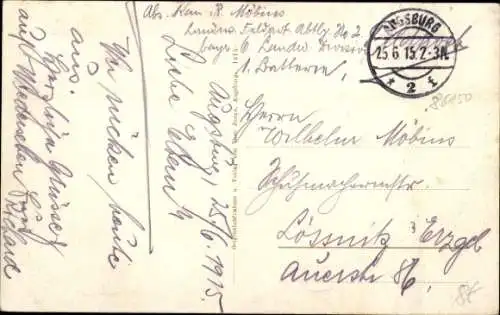 Abs. Kan. R. Möbius
Landw. Feldart. Abtlg. No 2
bayr. 6. Landw. Division
1. Batterie.
AUGSBURG
25.6.15. 2-3N.
* 2 *
86150
Herrn
Wilhelm Möbius
Schuhmachermstr.
Lössnitz Erzgeb
Auerstr. 86,
Augsburg, 25/6. 1915.
Liebe Eltern!
Wir rücken heute
aus.
Herzliche Grüsse
auf Wiedersehen Euer
Richard
8t